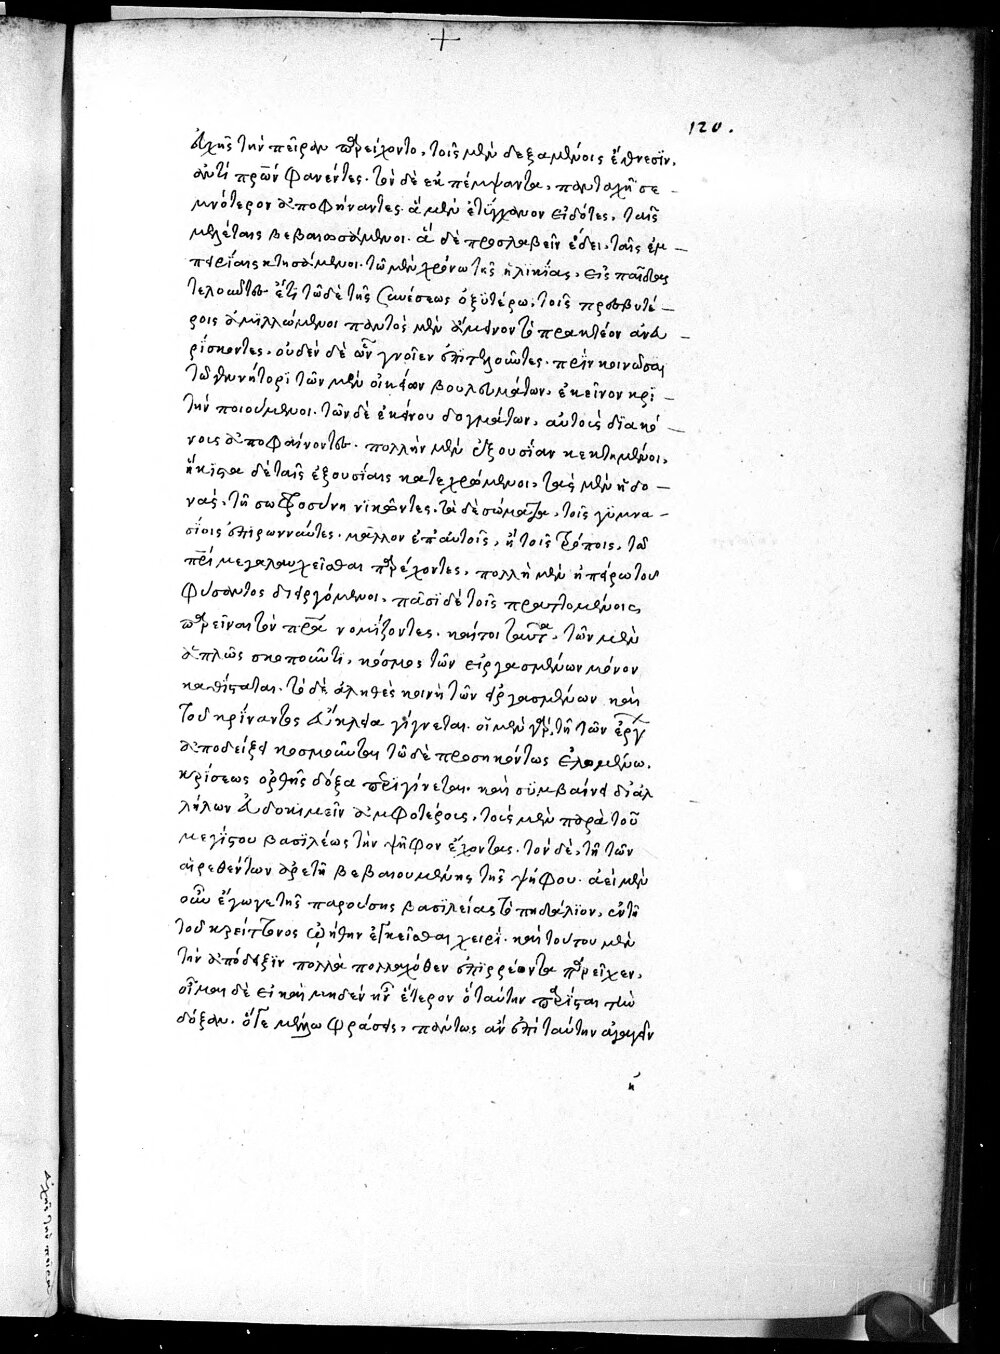 120.
εὐχῆς τὴν πεῖραν παρείχοντο, τοῖς μὲν δεξαμένοις ἔθνεσιν,
ἀντὶ πρῶν φανέντες. τὸν δὲ ἐκπέμψαντα, πανταχῆ σε-
μνότερον ἀποφήναντες. ἃ μὲν ἐτύγχανον εἰδότες, ταῖς
μελέταις βεβαιωσάμενοι. ἃ δὲ προσλαβεῖν ἔδει, ταῖς ἐμ-
πειρίαις κτησάμενοι. τῶ μὲν χρόνω τῆς ἡλικίας, εἰς παῖδας
τελοῦντες ἔτι τῶ δὲ τῆς συνέσεως ὀξυτέρω, τοῖς πρεσβυτέ-
ροις ἁμιλλώμενοι παντὸς μὲν ἄμεινον τὸ πρακτέον ἀνευ-
ρίσκοντες, οὐδὲν δὲ ὧν γνοῖεν ἐπιτελοῦντες. πρὶν κοινῶσαι
τῶ γεννήτορι τῶν μὲν οἰκείων βουλευμάτων, ἐκεῖνον κρι-
τὴν ποιούμενοι. τῶν δὲ ἐκείνου δογμάτων, αὐτοὺς διακό-
νους ἀποφαίνοντες. πολλὴν μὲν ἐξουσίαν κεκτημένοι,
ἥκιστα δὲ ταῖς ἐξουσίαις καταχρώμενοι, τὰς μὲν ἡδο-
νάς, τῆ σωφροσύνη νικῶντες. τὰ δὲ σώματα, τοῖς γυμνα-
σίοις ἐπιρωννύντες. μᾶλλον ἐπ' αὐτοῖς, ἢ τοῖς τρόποις, τῶ
πρὶ μεγαλαυχεῖσθαι παρέχοντες, πολλὴ μὲν ἠπείρω τοῦ
φύσαντος διειργόμενοι, πᾶσι δὲ τοῖς πραττομένοις
παρεῖναι τὸν πρα νομίζοντες. καίτοι ταῦτα, τῶν μὲν
ἁπλῶς σκοποῦντι, κόσμος τῶν εἰργασμένων μόνον
καθίσταται. τὸ δὲ ἀληθὲς κοινὴ τῶν εἰργασμένων καὶ
τοῦ κρίναντος εὔκλεια γίγνεται. οἱ μὲν γὰρ, τῆ τῶν ἔργ
ἀποδείξει κοσμοῦνται τῶ δὲ προσηκόντως ἑλομένω,
κρίσεως ὀρθῆς δόξα πριγίνεται. καὶ συμβαίνει δι' ἀλ
λήλων εὐδοκιμεῖν ἀμφοτέροις, τοὺς μὲν παρὰ τοῦ
μεγίστου βασιλέως τὴν ψῆφον ἔχοντας. τὸν δὲ, τῆ τῶν
αἱρεθέντων ἀρετῆ βεβαιουμένης τῆς ψήφου. ἀεὶ μὲν
οὖν ἔγωγε τῆς παρούσης βασιλείας τὸ πηδάλιον, ἐν τῆ
τοῦ κρείττονος ᾠήθην ἐγκεῖσθαι χειρί. καὶ τούτου μὲν
τὴν ἀπόδειξιν πολλὰ πολλαχόθεν ἐπιρρέοντα παρεῖχεν,
οἶμαι δὲ εἰ καὶ μηδὲν ἦν ἕτερον ὃ ταύτην παρίστα τὴν
δόξαν. ὅγε μέλλω φράσειν, πάντως ἂν ἐπὶ ταύτην ἀγαγεῖν
ἡ